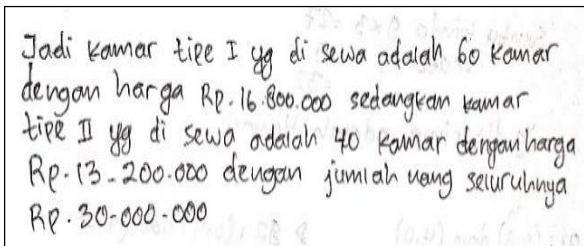 Jadi kamar tipe I yg di sewa adalah 60 kamar
dengan harga Rp. 16.800.000 sedangkan kamar
tipe II yg di sewa adalah 40 kamar dengan harga
Rp. 13-200.000 dengan jumlah uang seluruhnya
Rp. 30-000-000